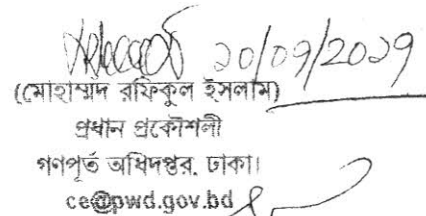 ২০/০৭/২০১৭
(মোহাম্মদ রফিকুল ইসলাম)
প্রধান প্রকৌশলী
গণপূর্ত অধিদপ্তর, ঢাকা।
ce@pwd.gov.bd